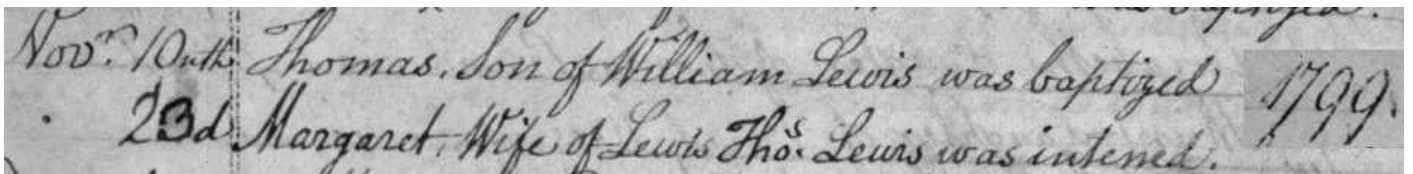 was baptized.
Novr. 10nth Thomas. Son of William Lewis was baptized 1799.
23d Margaret. Wife of Lewis Thos. Lewis was interred.